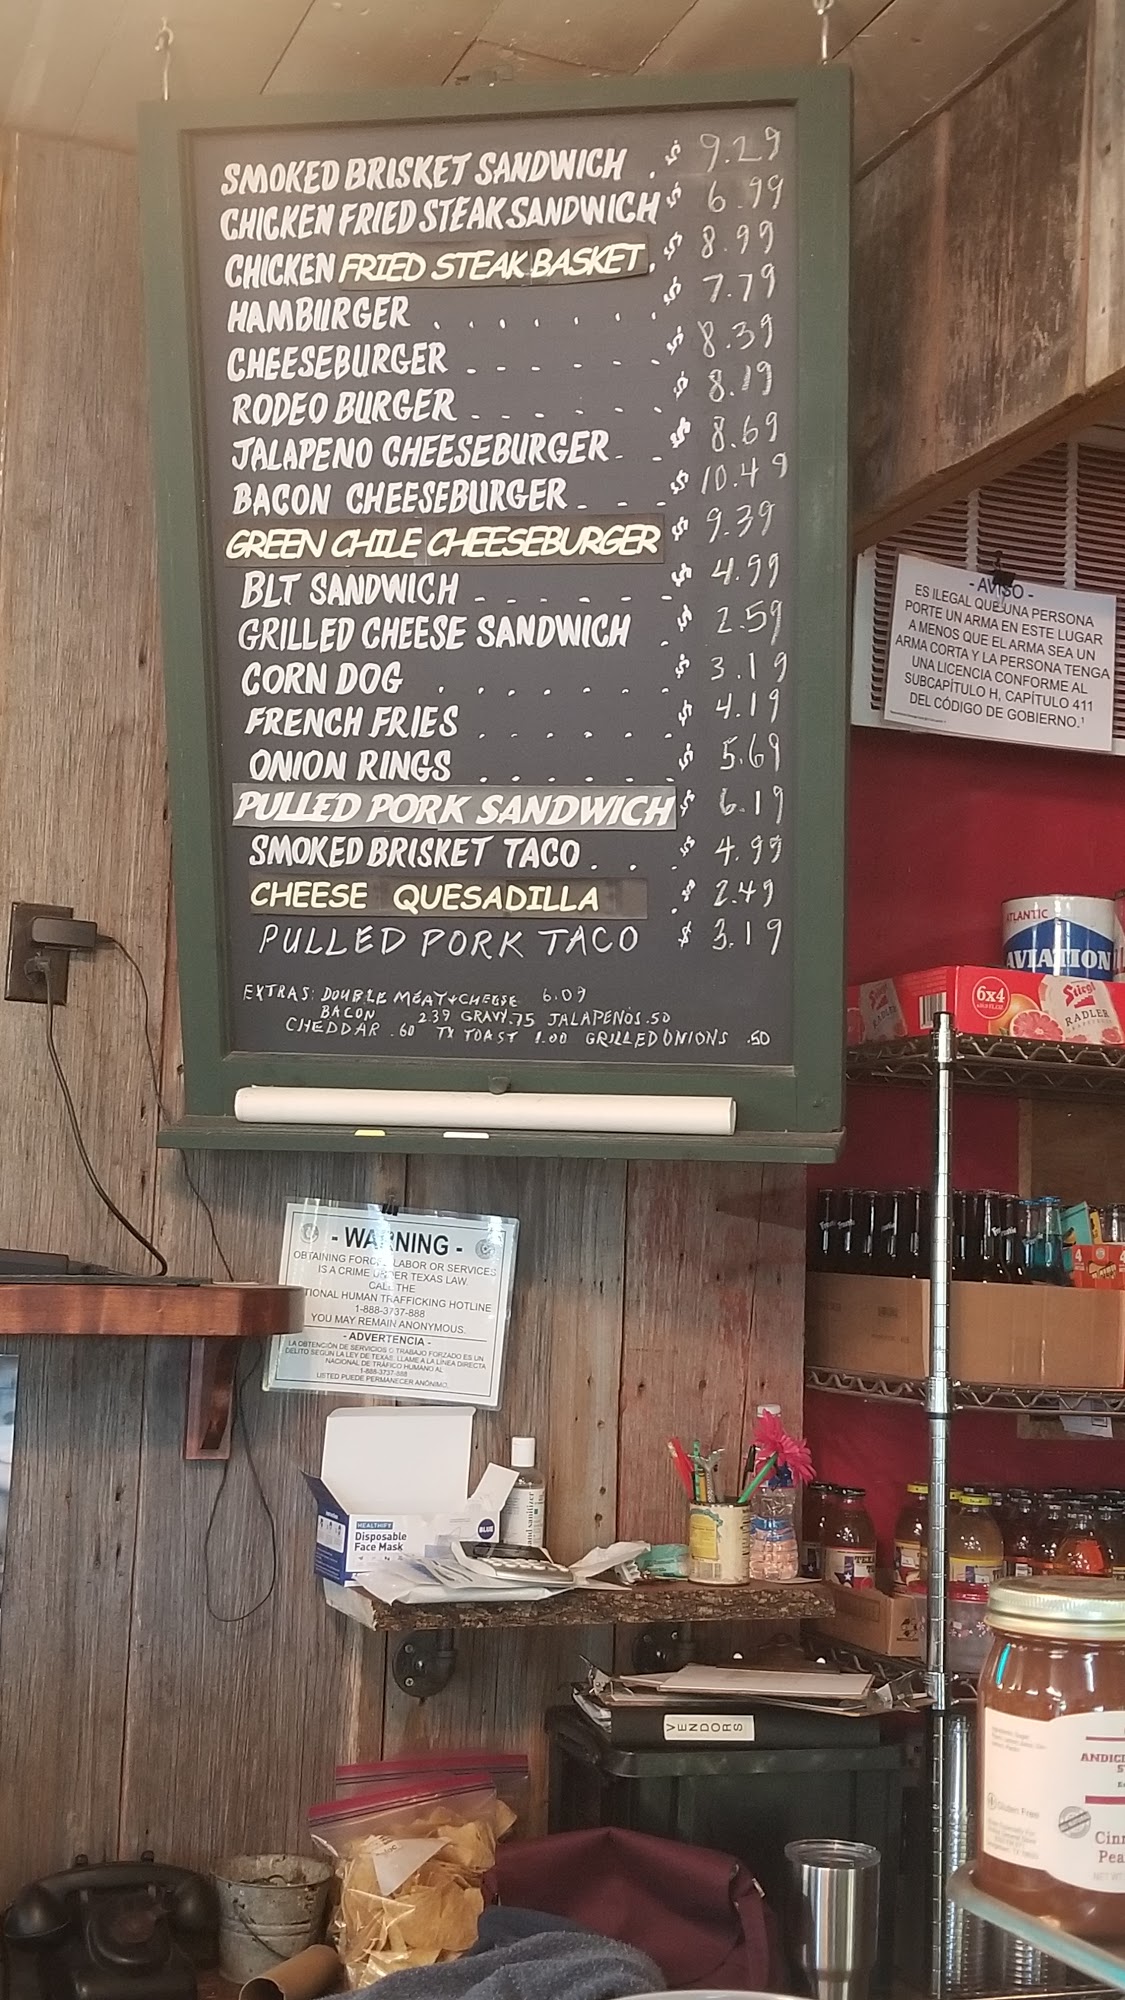 SMOKED BRISKET SANDWICH . $ 9.29
CHICKEN FRIED STEAK SANDWICH $ 6.99
CHICKEN FRIED STEAK BASKET . $ 8.99
HAMBURGER . . . . . . . $ 7.79
CHEESEBURGER - - - - - - $ 8.39
RODEO BURGER - - - - - - $ 8.19
JALAPENO CHEESEBURGER - - $ 8.69
BACON CHEESEBURGER - - - $ 10.49
GREEN CHILE CHEESEBURGER $ 9.39
BLT SANDWICH - - - - - - $ 4.99
GRILLED CHEESE SANDWICH . $ 2.59
CORN DOG . . . . . . . $ 3.19
FRENCH FRIES . . . . . . $ 4.19
ONION RINGS . . . . . . $ 5.69
PULLED PORK SANDWICH $ 6.19
SMOKED BRISKET TACO . . . $ 4.99
CHEESE QUESADILLA . $ 2.49
PULLED PORK TACO $ 3.19
EXTRAS: DOUBLE MEAT + CHEESE 6.09
BACON 2.39 GRAVY .75 JALAPENOS .50
CHEDDAR .60 TX TOAST 1.00 GRILLED ONIONS .50
- AVISO -
ES ILEGAL QUE UNA PERSONA
PORTE UN ARMA EN ESTE LUGAR
A MENOS QUE EL ARMA SEA UN
ARMA CORTA Y LA PERSONA TENGA
UNA LICENCIA CONFORME AL
SUBCAPÍTULO H, CAPÍTULO 411
DEL CÓDIGO DE GOBIERNO.¹
ATLANTIC
AVIATION
6x4
Stiegl
RADLER
- WARNING -
OBTAINING FORCED LABOR OR SERVICES
IS A CRIME UNDER TEXAS LAW.
CALL THE
TIONAL HUMAN TRAFFICKING HOTLINE
1-888-3737-888
YOU MAY REMAIN ANONYMOUS.
- ADVERTENCIA -
LA OBTENCIÓN DE SERVICIOS O TRABAJO FORZADO ES UN
DELITO SEGÚN LA LEY DE TEXAS. LLAME A LA LÍNEA DIRECTA
NACIONAL DE TRÁFICO HUMANO AL
1-888-3737-888
USTED PUEDE PERMANECER ANÓNIMO.
HEALTHIFY
Disposable
Face Mask
BLUE
hand sanitizer
VENDORS
ANDIC
Gluten Free
Cinn
Pea